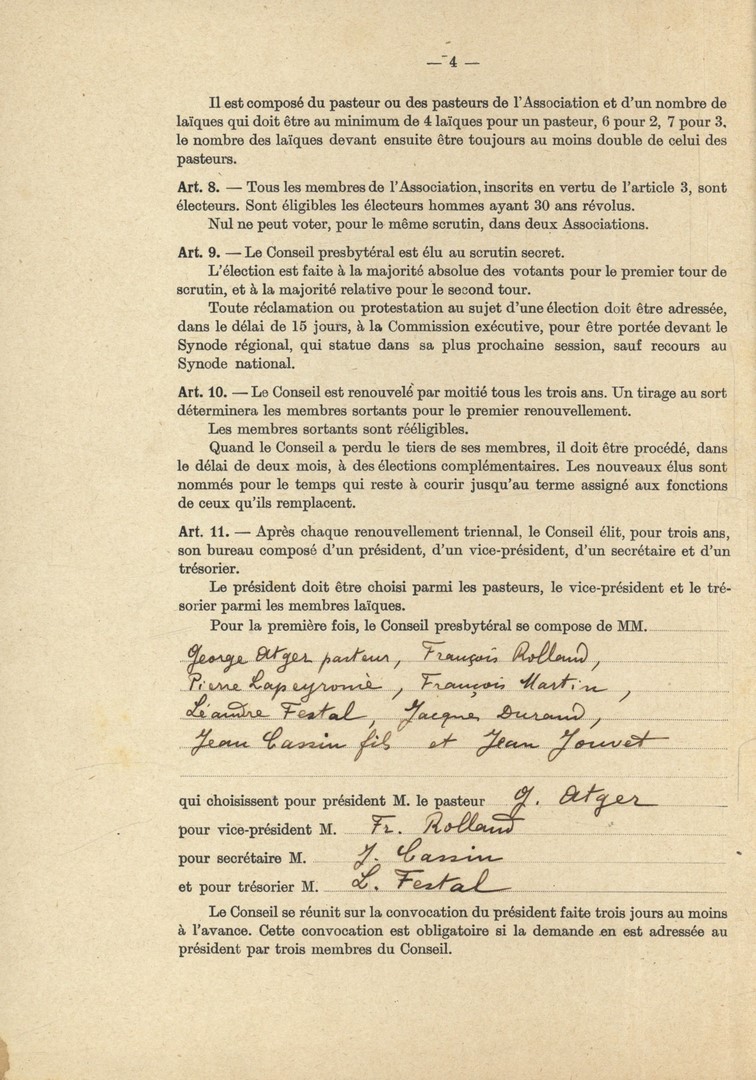 — 4 —
Il est composé du pasteur ou des pasteurs de l'Association et d'un nombre de
laïques qui doit être au minimum de 4 laïques pour un pasteur, 6 pour 2, 7 pour 3,
le nombre des laïques devant ensuite être toujours au moins double de celui des
pasteurs.
Art. 8. — Tous les membres de l'Association, inscrits en vertu de l'article 3, sont
électeurs. Sont éligibles les électeurs hommes ayant 30 ans révolus.
Nul ne peut voter, pour le même scrutin, dans deux Associations.
Art. 9. — Le Conseil presbytéral est élu au scrutin secret.
L'élection est faite à la majorité absolue des votants pour le premier tour de
scrutin, et à la majorité relative pour le second tour.
Toute réclamation ou protestation au sujet d'une élection doit être adressée,
dans le délai de 15 jours, à la Commission exécutive, pour être portée devant le
Synode régional, qui statue dans sa plus prochaine session, sauf recours au
Synode national.
Art. 10. — Le Conseil est renouvelé par moitié tous les trois ans. Un tirage au sort
déterminera les membres sortants pour le premier renouvellement.
Les membres sortants sont rééligibles.
Quand le Conseil a perdu le tiers de ses membres, il doit être procédé, dans
le délai de deux mois, à des élections complémentaires. Les nouveaux élus sont
nommés pour le temps qui reste à courir jusqu'au terme assigné aux fonctions
de ceux qu'ils remplacent.
Art. 11. — Après chaque renouvellement triennal, le Conseil élit, pour trois ans,
son bureau composé d'un président, d'un vice-président, d'un secrétaire et d'un
trésorier.
Le président doit être choisi parmi les pasteurs, le vice-président et le tré-
sorier parmi les membres laïques.
Pour la première fois, le Conseil presbytéral se compose de MM.
George Atger pasteur, François Rolland,
Pierre Lapeyronie, François Martin,
Léandre Festal, Jacques Durand,
Jean Cassin fils et Jean Jouvet
qui choisissent pour président M. le pasteur G. Atger
pour vice-président M. Fr. Rolland
pour secrétaire M. J. Cassin
et pour trésorier M. L. Festal
Le Conseil se réunit sur la convocation du président faite trois jours au moins
à l'avance. Cette convocation est obligatoire si la demande en est adressée au
président par trois membres du Conseil.